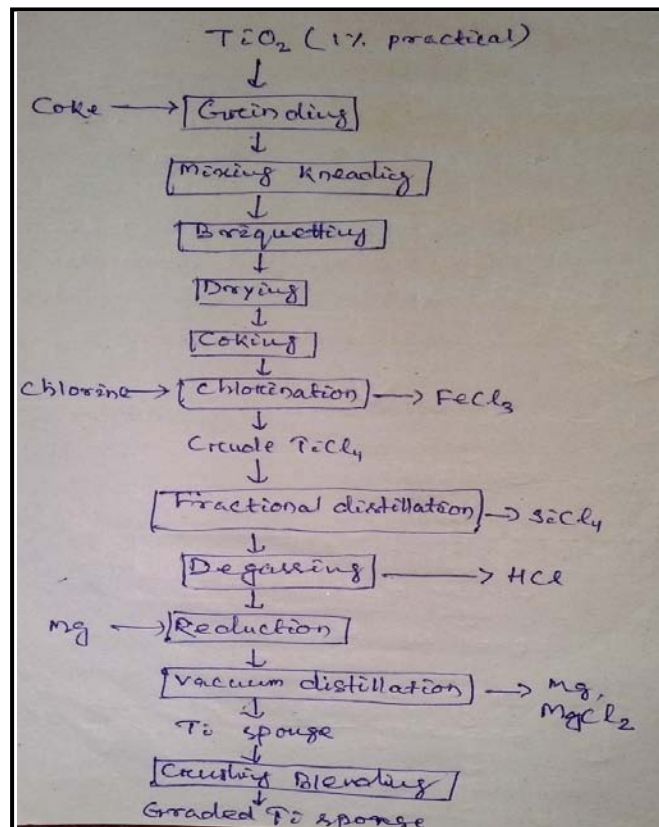 TiO2 (1% practical)
Coke → Grinding
Mixing kneading
Briquetting
Drying
Coking
Chlorine → Chlorination → FeCl3
Crude TiCl4
Fractional distillation → SiCl4
Degassing → HCl
Mg → Reduction
Vacuum distillation → Mg,
MgCl2
Ti sponge
Crushing Blending
Graded Ti sponge